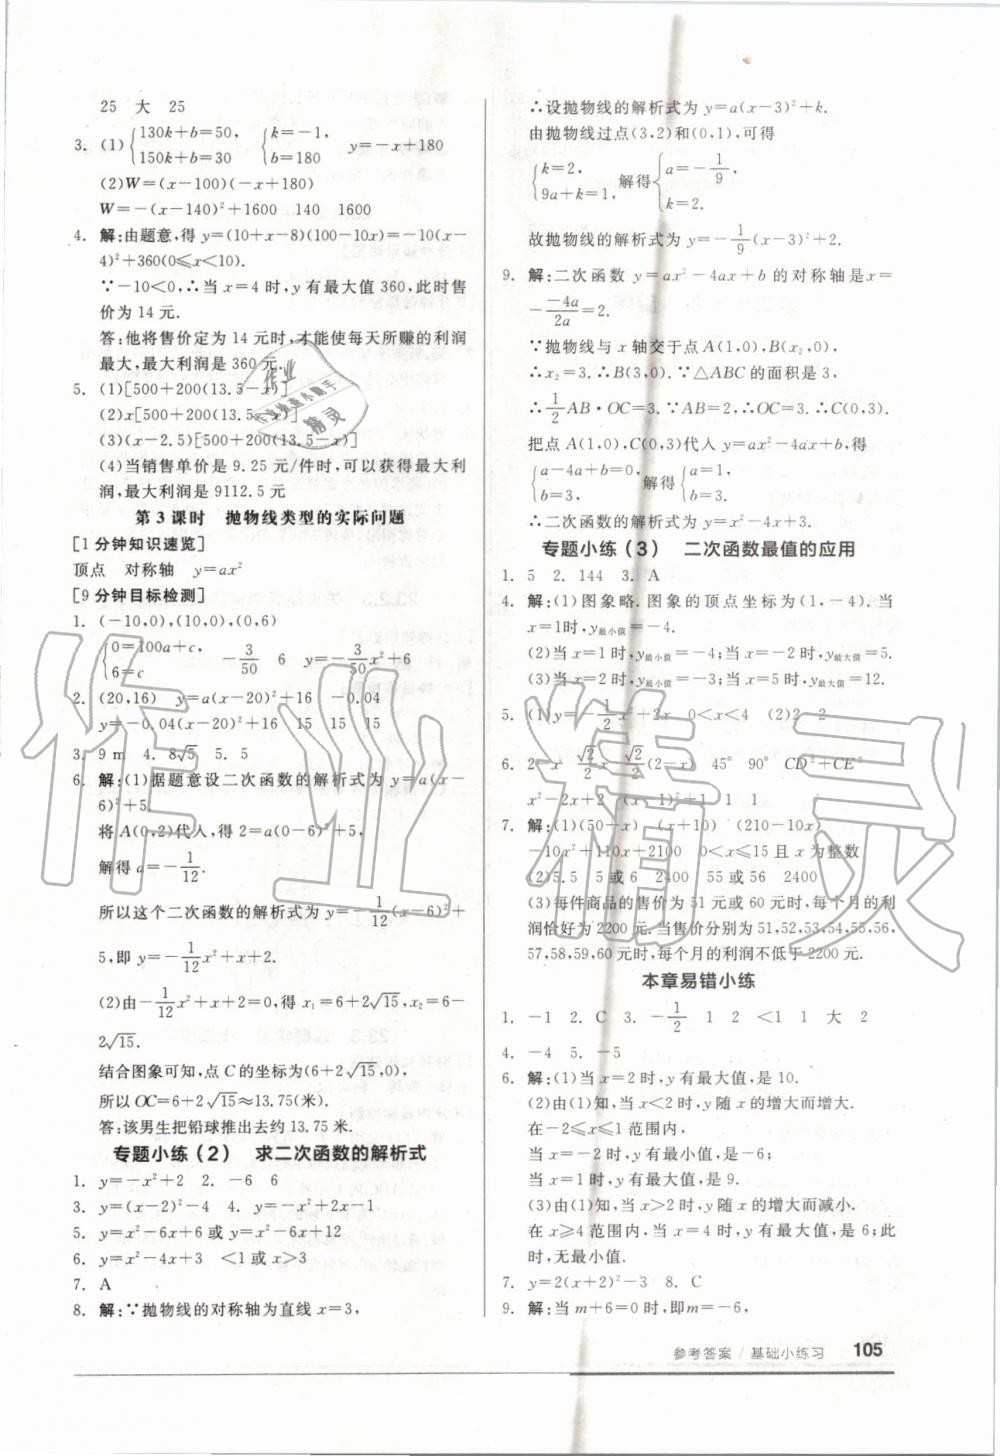 25 大 25
3. (1){130k+b=50, 150k+b=30 {k=-1, b=180 y=-x+180
(2)W=(x-100)(-x+180)
W=-(x-140)²+1600 140 1600
4. 解:由题意,得 y=(10+x-8)(100-10x)=-10(x-
4)²+360(0≤x<10).
∵-10<0,∴当 x=4 时,y 有最大值 360,此时售
价为 14 元.
答:他将售价定为 14 元时,才能使每天所赚的利润
最大,最大利润是 360 元.
5. (1)[500+200(13.5-x)]
(2)x[500+200(13.5-x)]
(3)(x-2.5)[500+200(13.5-x)]
(4)当销售单价是 9.25 元/件时,可以获得最大利
润,最大利润是 9112.5 元
第 3 课时 抛物线类型的实际问题
[1 分钟知识速览]
顶点 对称轴 y=ax²
[9 分钟目标检测]
1. (-10,0),(10,0),(0,6)
{0=100a+c, 6=c -3/50 6 y=-3/50x²+6
2. (20,16) y=a(x-20)²+16 -0.04
y=-0.04(x-20)²+16 15 15 15
3. 9 m 4. 8√5 5. 5
6. 解:(1)据题意设二次函数的解析式为 y=a(x-
6)²+5.
将 A(0,2)代入,得 2=a(0-6)²+5,
解得 a=-1/12.
所以这个二次函数的解析式为 y=-1/12(x-6)²+
5,即 y=-1/12x²+x+2.
(2)由-1/12x²+x+2=0,得 x₁=6+2√15,x₂=6-
2√15.
结合图象可知,点 C 的坐标为(6+2√15,0),
所以 OC=6+2√15≈13.75(米).
答:该男生把铅球推出去约 13.75 米.
专题小练(2) 求二次函数的解析式
1. y=-x²+2 2. -6 6
3. y=(x-2)²-4 4. y=-x²+2x-1
5. y=x²-6x+6 或 y=x²-6x+12
6. y=x²-4x+3 <1 或 x>3
7. A
8. 解:∵抛物线的对称轴为直线 x=3,
∴设抛物线的解析式为 y=a(x-3)²+k.
由抛物线过点(3,2)和(0,1),可得
{k=2, 9a+k=1, 解得{a=-1/9, k=2.
故抛物线的解析式为 y=-1/9(x-3)²+2.
9. 解:二次函数 y=ax²-4ax+b 的对称轴是 x=
--4a/2a=2.
∵抛物线与 x 轴交于点 A(1,0),B(x₂,0),
∴x₂=3.∴B(3,0).∵△ABC 的面积是 3,
∴1/2AB·OC=3.∵AB=2,∴OC=3.∴C(0,3).
把点 A(1,0),C(0,3)代入 y=ax²-4ax+b,得
{a-4a+b=0, b=3, 解得{a=1, b=3.
∴二次函数的解析式为 y=x²-4x+3.
专题小练(3) 二次函数最值的应用
1. 5 2. 144 3. A
4. 解:(1)图象略.图象的顶点坐标为(1,-4).当
x=1时,y最小值=-4.
(2)当 x=1 时,y最小值=-4;当 x=-2 时,y最大值=5.
(3)当 x=2 时,y最小值=-3;当 x=5 时,y最大值=12.
5. (1)y=-1/2x²+2x 0<x<4 (2)2 2
6. 2-x √2/2x √2/2(2-x) 45° 90° CD²+CE²
x²-2x+2 (x-1)²+1 1 1
7. 解:(1)(50+x) (x+10) (210-10x)
-10x²+110x+2100 0<x≤15 且 x 为整数
(2)5.5 5 或 6 2400 55 或 56 2400
(3)每件商品的售价为 51 元或 60 元时,每个月的利
润恰好为 2200 元.当售价分别为 51,52,53,54,55,56,
57,58,59,60 元时,每个月的利润不低于 2200 元.
本章易错小练
1. -1 2. C 3. -1/2 1 2 <1 1 大 2
4. -4 5. -5
6. 解:(1)当 x=2 时,y 有最大值,是 10.
(2)由(1)知,当 x<2 时,y 随 x 的增大而增大.
在-2≤x≤1 范围内,
当 x=-2 时,y 有最小值,是-6;
当 x=1 时,y 有最大值,是 9.
(3)由(1)知,当 x>2 时,y 随 x 的增大而减小.
在 x≥4 范围内,当 x=4 时,y 有最大值,是 6;此
时,无最小值.
7. y=2(x+2)²-3 8. C
9. 解:当 m+6=0 时,即m=-6,
参考答案 / 基础小练习 105
作业精灵